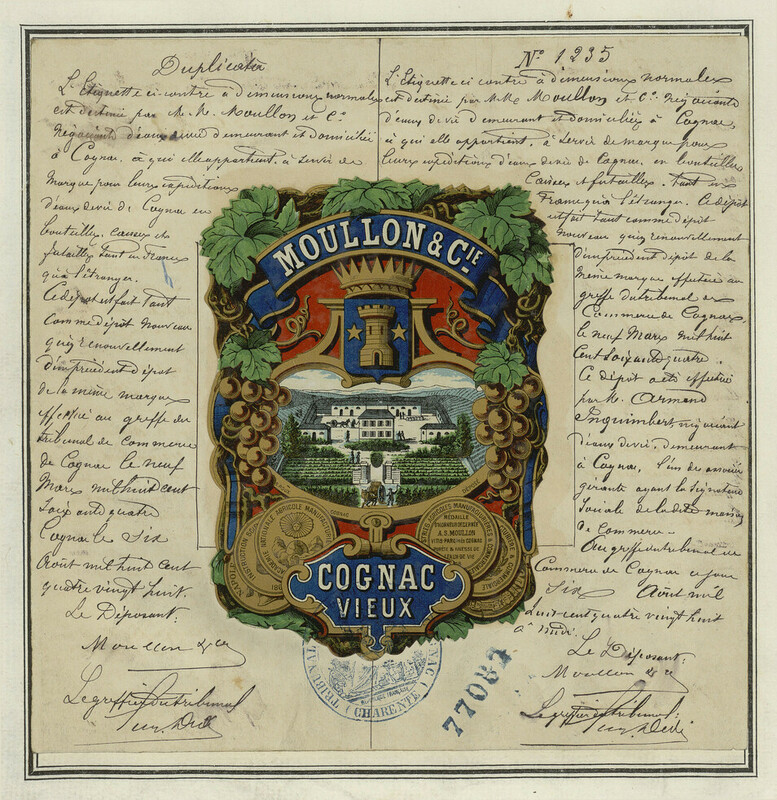 Duplicata
L'Etiquette ci contre à dimensions normales
est destinée par M. M. Moullon et Cie
Négociants d'eaux de vie demeurant et domiciliés
à Cognac, à qui elle appartient, à servir de
marque pour leurs expéditions
d'eaux de vie de Cognac en
bouteilles, caisses et
futailles tant en France
qu'à l'étranger.
Ce dépôt est fait tant
comme dépôt nouveau
qu'en renouvellement
d'un précédent dépôt
de la même marque
effectué au greffe du
tribunal de commerce
de Cognac le neuf
Mars mil huit cent
soixante quatre
Cognac le Six
Août mil huit cent
quatre vingt huit.
Le Déposant:
Moullon & Cie
Le greffier du tribunal
No 1235
L'Etiquette ci contre à dimensions normales
est destinée par MM. Moullon et Cie Négociants
d'eaux de vie demeurant et domiciliés à Cognac,
à qui elle appartient, à servir de marque pour
leurs expéditions d'eaux de vie de Cognac, en bouteilles
Caisses et futailles, tant en
France qu'à l'étranger. Ce dépôt
est fait tant comme dépôt
nouveau qu'en renouvellement
d'un précédent dépôt de la
même marque effectué au
greffe du tribunal de
Commerce de Cognac
le neuf Mars mil huit
Cent soixante quatre.
Ce dépôt a été effectué
par M. Armand
Inquimbert négociant
d'eaux de vie, demeurant
à Cognac, l'un des
gérants ayant la signature
sociale de la dite maison
de Commerce.
Au greffe du tribunal de
Commerce de Cognac ce jour
Six Août mil
huit cent quatre vingt huit
à midi.
Le Déposant:
Moullon & Cie
Le greffier du tribunal:
MOULLON & CIE
MÉDAILLE
D'HONNEUR DÉCERNÉE
A. D. MOULLON
COGNAC
VIEUX
TRIBUNAL
COGNAC
(CHARENTE)
77082